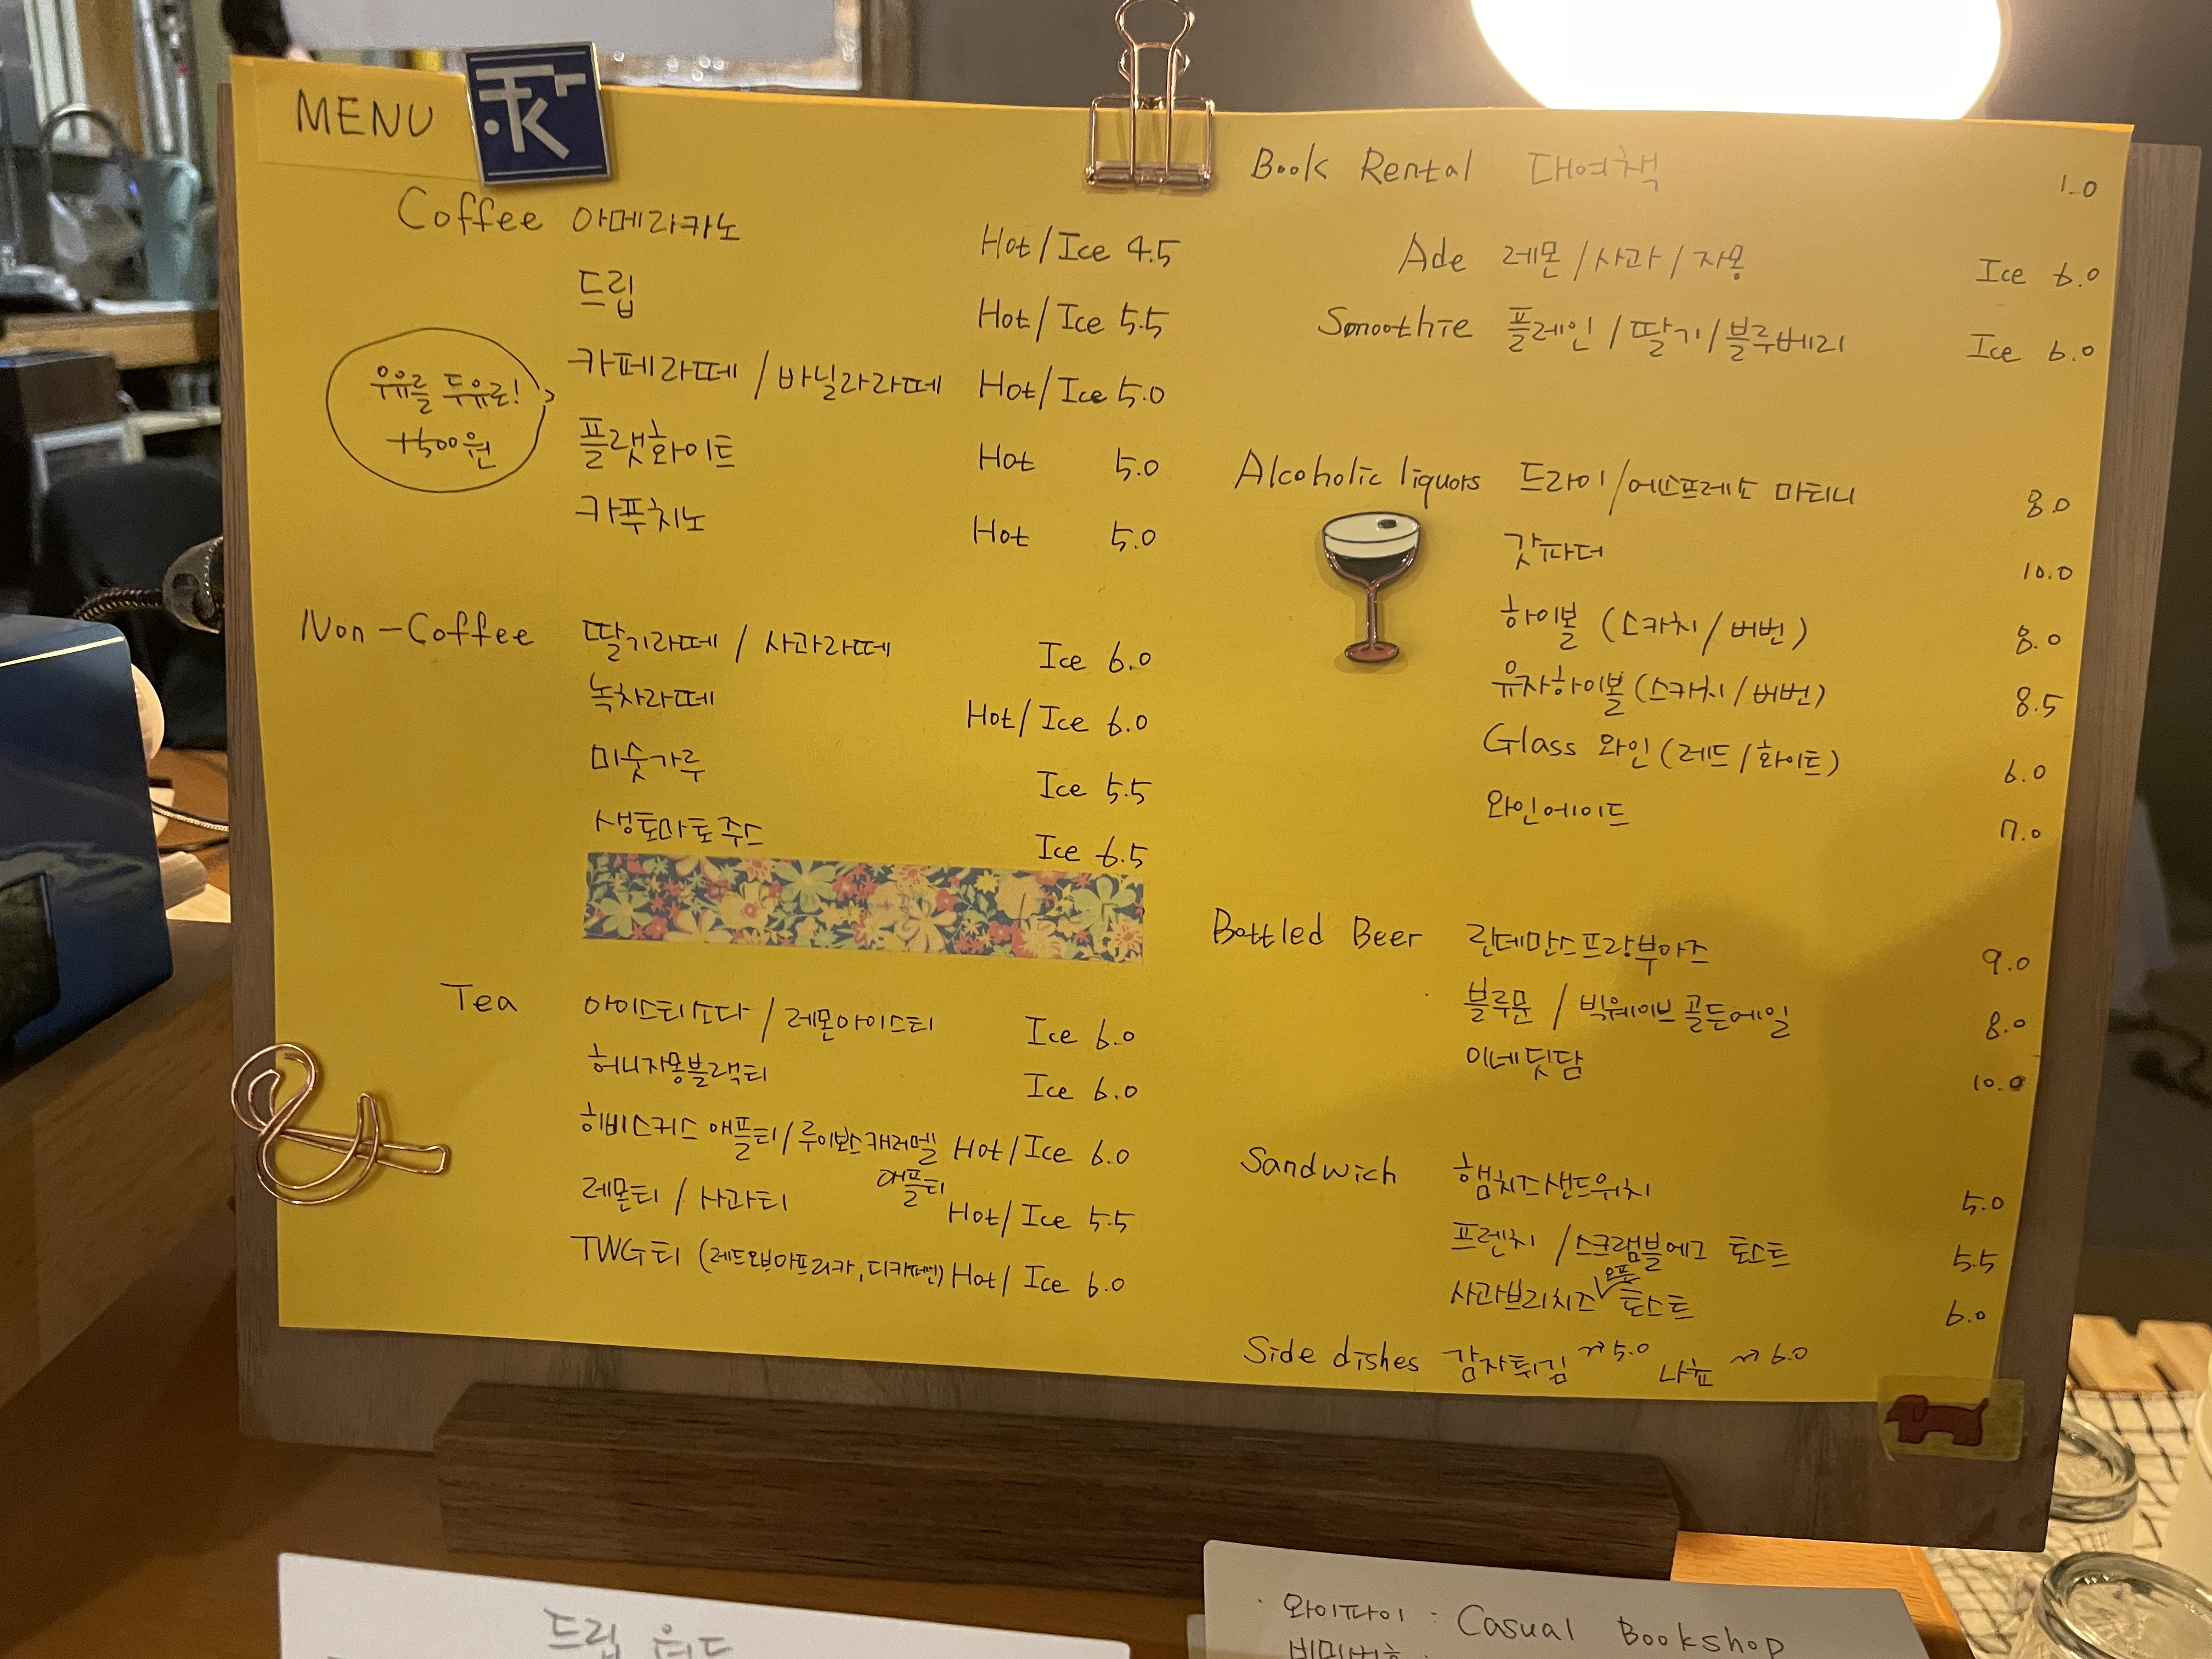 MENU
Coffee 아메리카노 Hot/Ice 4.5
드립 Hot/Ice 5.5
카페라떼 / 바닐라라떼 Hot/Ice 5.0
우유를 두유로!
+500원
플랫화이트 Hot 5.0
카푸치노 Hot 5.0
Non-Coffee 딸기라떼 / 사과라떼 Ice 6.0
녹차라떼 Hot/Ice 6.0
미숫가루 Ice 5.5
생토마토주스 Ice 6.5
Tea 아이스티소다 / 레몬아이스티 Ice 6.0
허니자몽블랙티 Ice 6.0
히비스커스 애플티/루이보스캐러멜 Hot/Ice 6.0
애플티
레몬티 / 사과티 Hot/Ice 5.5
TWG티 (레드오브아프리카, 디카페인) Hot/Ice 6.0
Book Rental 대여책 1.0
Ade 레몬/사과/자몽 Ice 6.0
Smoothie 플레인/딸기/블루베리 Ice 6.0
Alcoholic liquors 드라이/에스프레소 마티니 8.0
갓파더 10.0
하이볼 (스카치/버번) 8.0
유자하이볼 (스카치/버번) 8.5
Glass 와인 (레드/화이트) 6.0
와인에이드 7.0
Bottled Beer 린데만스프랑부아즈 9.0
블루문 / 빅웨이브골든에일 8.0
이네딧담 10.0
Sandwich 햄치즈샌드위치 5.0
프렌치 /스크램블에그 토스트 5.5
사과브리치즈 오픈 토스트 6.0
Side dishes 감자튀김 → 5.0 나쵸 → 6.0
드립 원두
· 와이파이 : Casual Bookshop